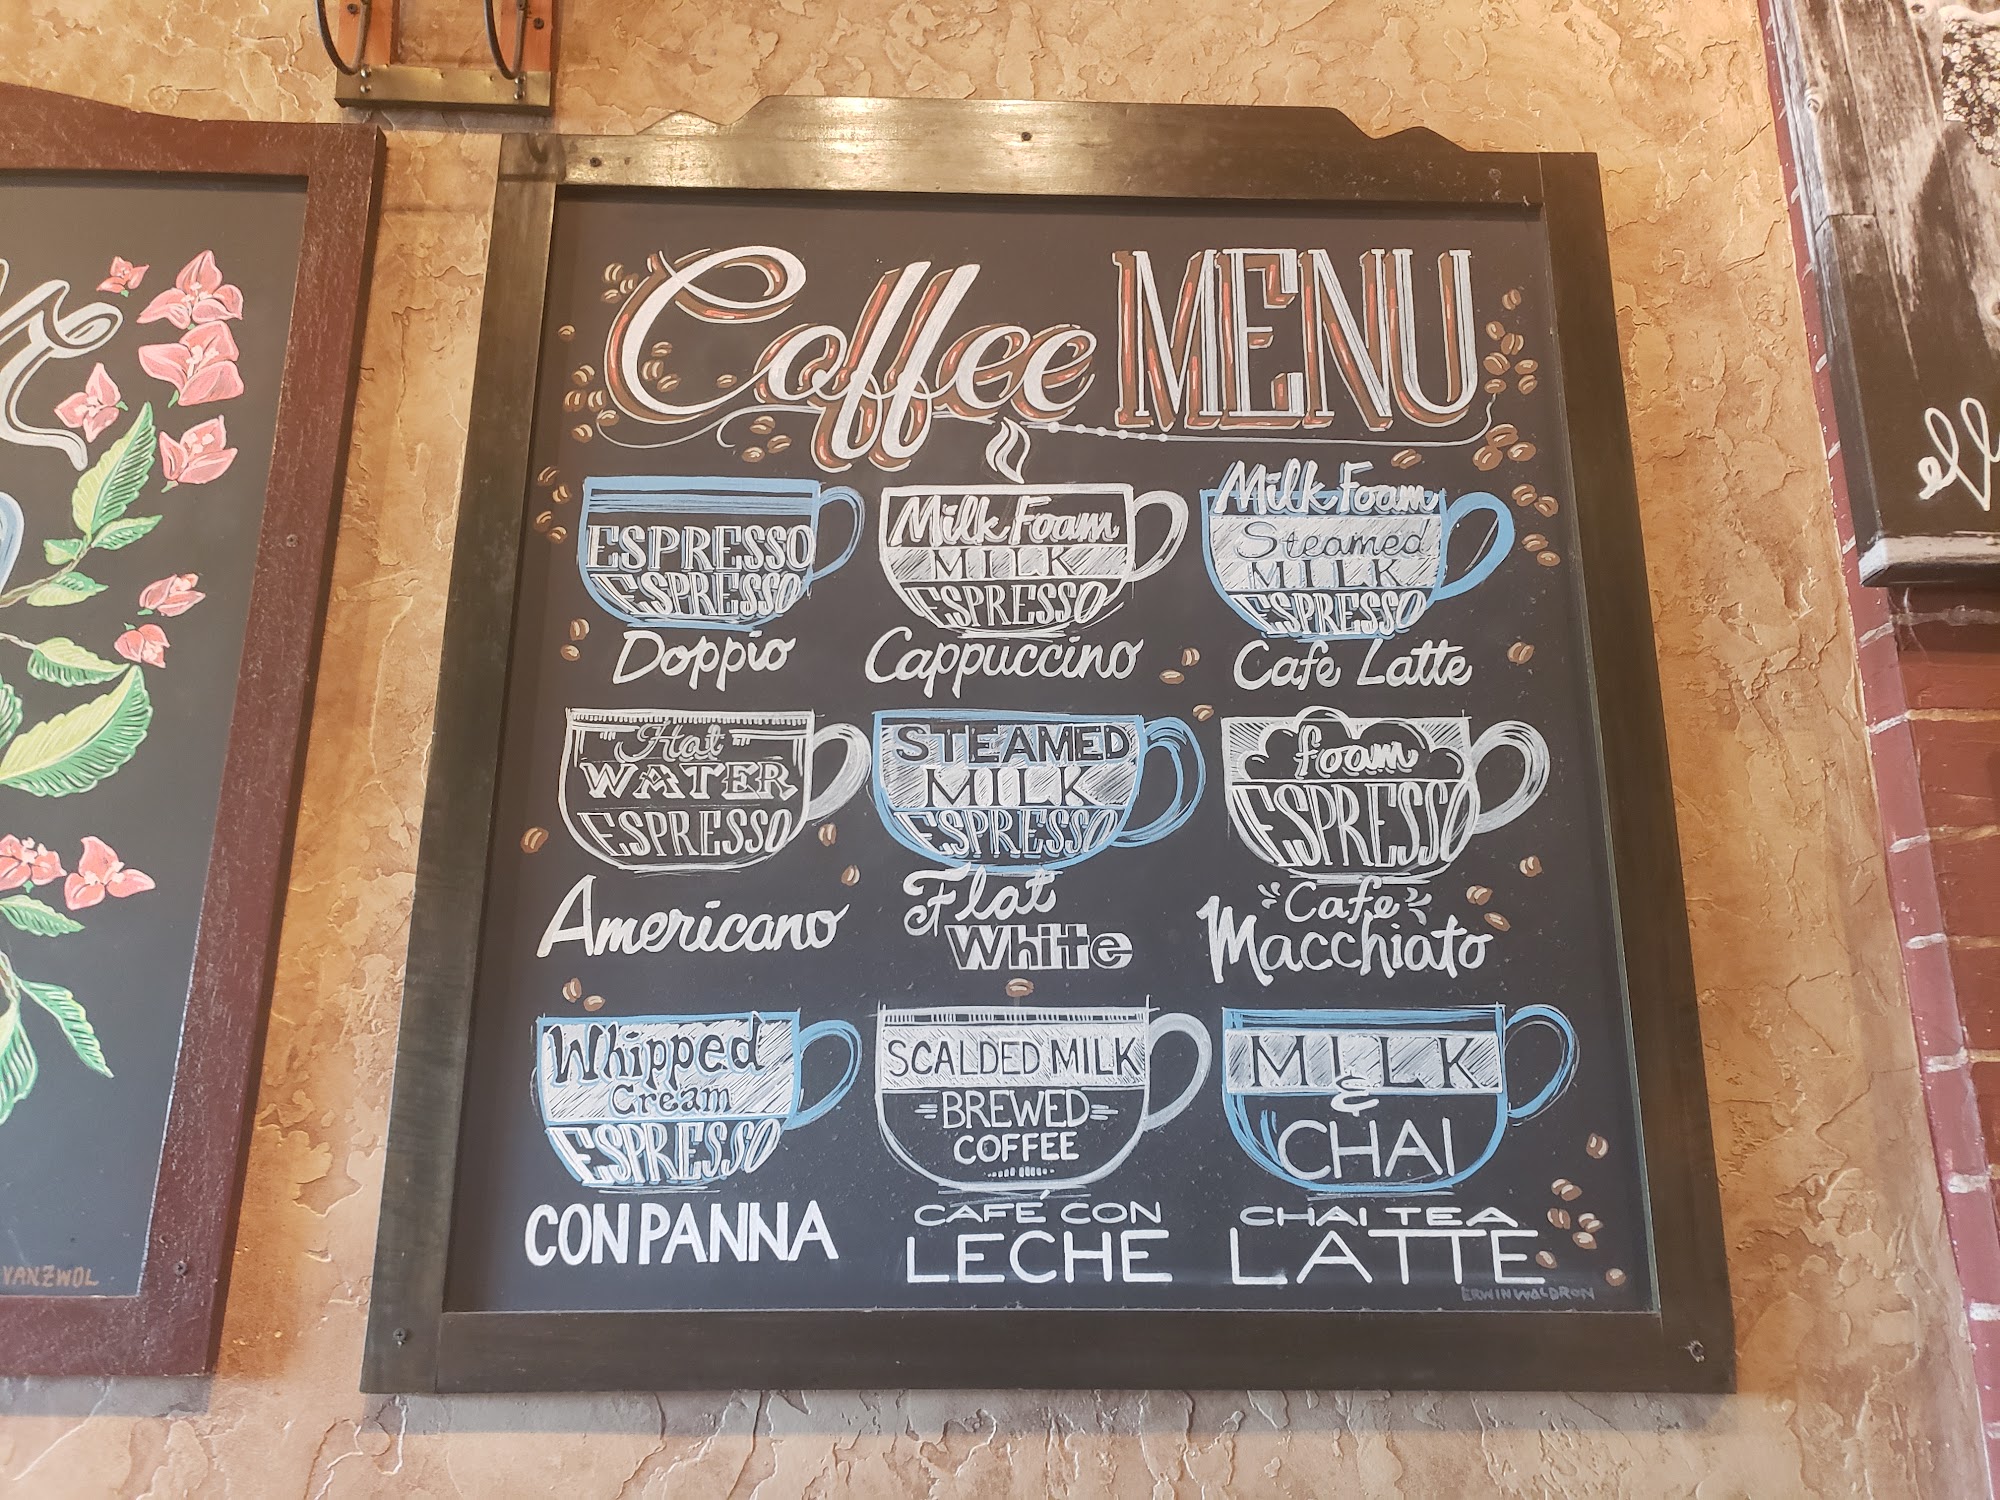 Coffee MENU
ESPRESSO
ESPRESSO
Doppio
Milk Foam
MILK
ESPRESSO
Cappuccino
Milk Foam
Steamed
MILK
ESPRESSO
Cafe Latte
Hot
WATER
ESPRESSO
Americano
STEAMED
MILK
ESPRESSO
Flat
White
foam
ESPRESSO
Cafe
Macchiato
Whipped
Cream
ESPRESSO
CON PANNA
SCALDED MILK
BREWED
COFFEE
CAFÉ CON
LECHE
MILK
&
CHAI
CHAI TEA
LATTE
ERWIN WALDRON
VANZWOL